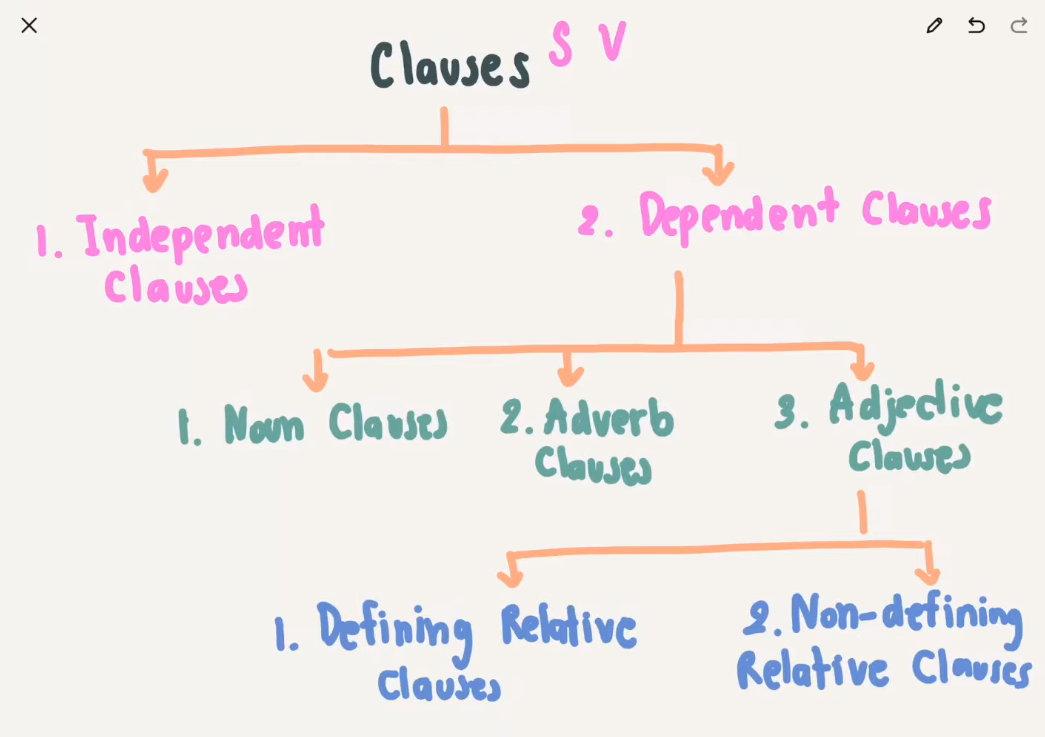 Clauses S V
1. Independent
Clauses
2. Dependent Clauses
1. Noun Clauses
2. Adverb
Clauses
3. Adjective
Clauses
1. Defining Relative
Clauses
2. Non-defining
Relative Clauses